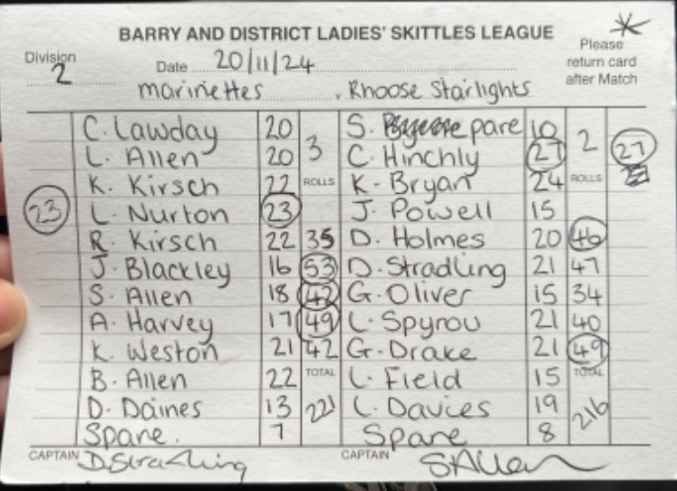 BARRY AND DISTRICT LADIES' SKITTLES LEAGUE
Division 2 Date 20/11/24 Please return card after Match
marinettes v. Rhoose Starlights
C. Lawday 20 3 S. pare 10 2
L. Allen 20 C. Hinchly 27 27
K. Kirsch 22 ROLLS K. Bryan 24 ROLLS
23 L. Nurton 23 J. Powell 15
R. Kirsch 22 35 D. Holmes 20 46
J. Blackley 16 53 D. Stradling 21 47
S. Allen 18 42 G. Oliver 15 34
A. Harvey 17 49 L. Spyrou 21 40
K. Weston 21 42 G. Drake 21 49
B. Allen 22 TOTAL L. Field 15 TOTAL
D. Daines 13 221 L. Davies 19 216
Spare. 7 Spare 8
CAPTAIN D. Stradling CAPTAIN S Allen